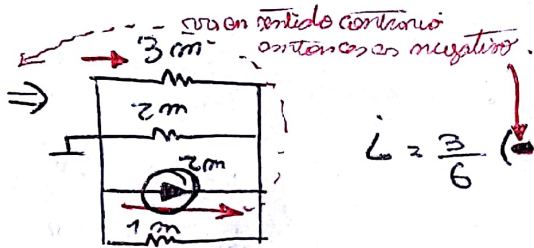 va en sentido contrario
entonces es negativo.
3 m
⇒
2 m
i = 3/6 (
2m
1 m